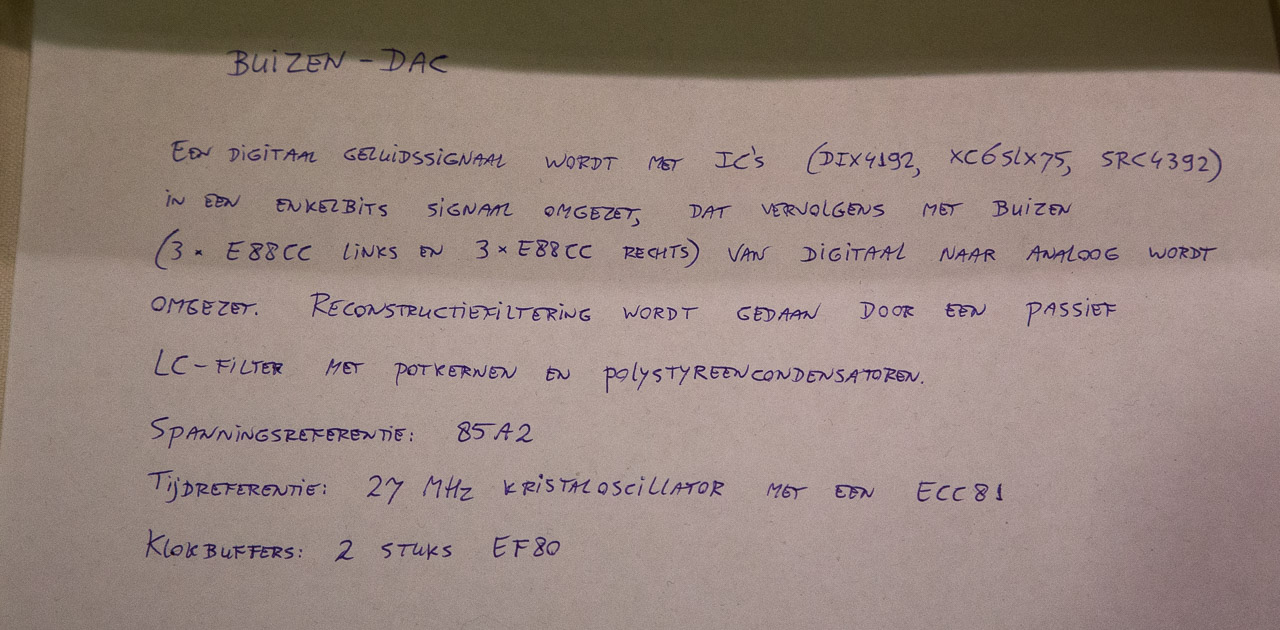 BUiZEN - DAC
EEN DiGiTAAL GELUiDSSiGNAAL WORDT MET IC's (DIX4192, XC6SLX75, SRC4392)
iN EEN ENKELBiTS SiGNAAL OMGEZET, DAT VERVOLGENS MET BUiZEN
(3 × E88CC LiNKS EN 3 × E88CC RECHTS) VAN DiGiTAAL NAAR ANALOOG WORDT
OMGEZET. RECONSTRUCTiEFiLTERiNG WORDT GEDAAN DOOR EEN PASSiEF
LC-FiLTER MET POTKERNEN EN POLYSTYREENCONDENSATOREN.
SPANNiNGSREFERENTiE: 85A2
TijDREFERENTiE: 27 MHz KRiSTALOSCiLLATOR MET EEN ECC81
KLOKBUFFERS: 2 STUKS EF80